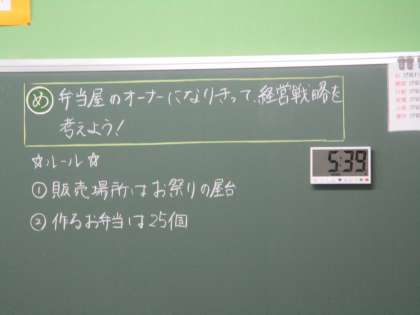 め 弁当屋のオーナーになりきって、経営戦略を
考えよう!
☆ルール☆
① 販売場所はお祭りの屋台
② 作るお弁当は25個
5:39